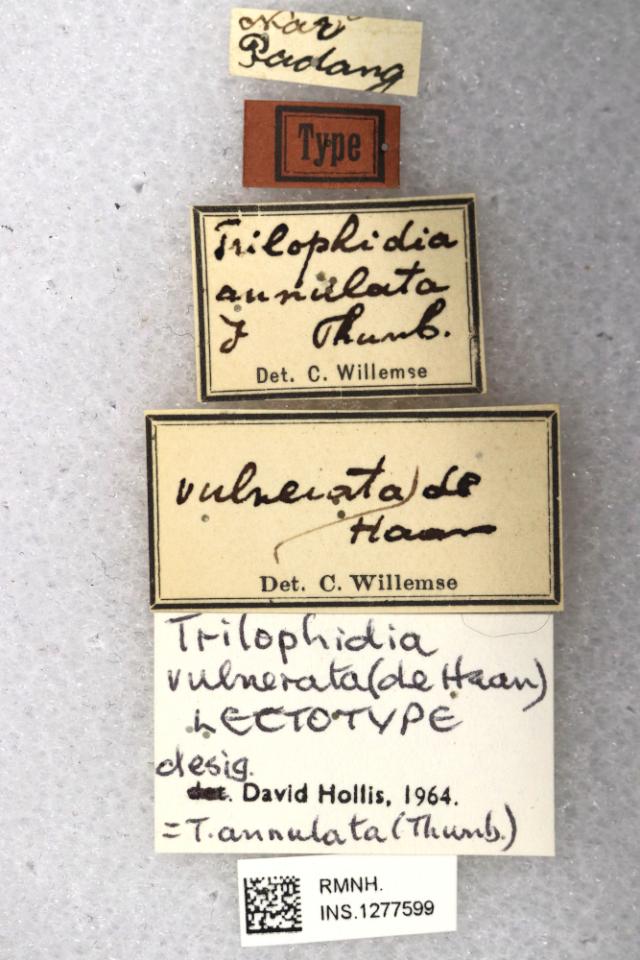 Padang
Type
Trilophidia
annulata
Thunb.
Det. C. Willemse
vulnerata) de
Haan
Det. C. Willemse
Trilophidia
vulnerata (de Haan)
LECTOTYPE
desig.
det. David Hollis, 1964.
= T. annulata (Thunb.)
RMNH.
INS.1277599